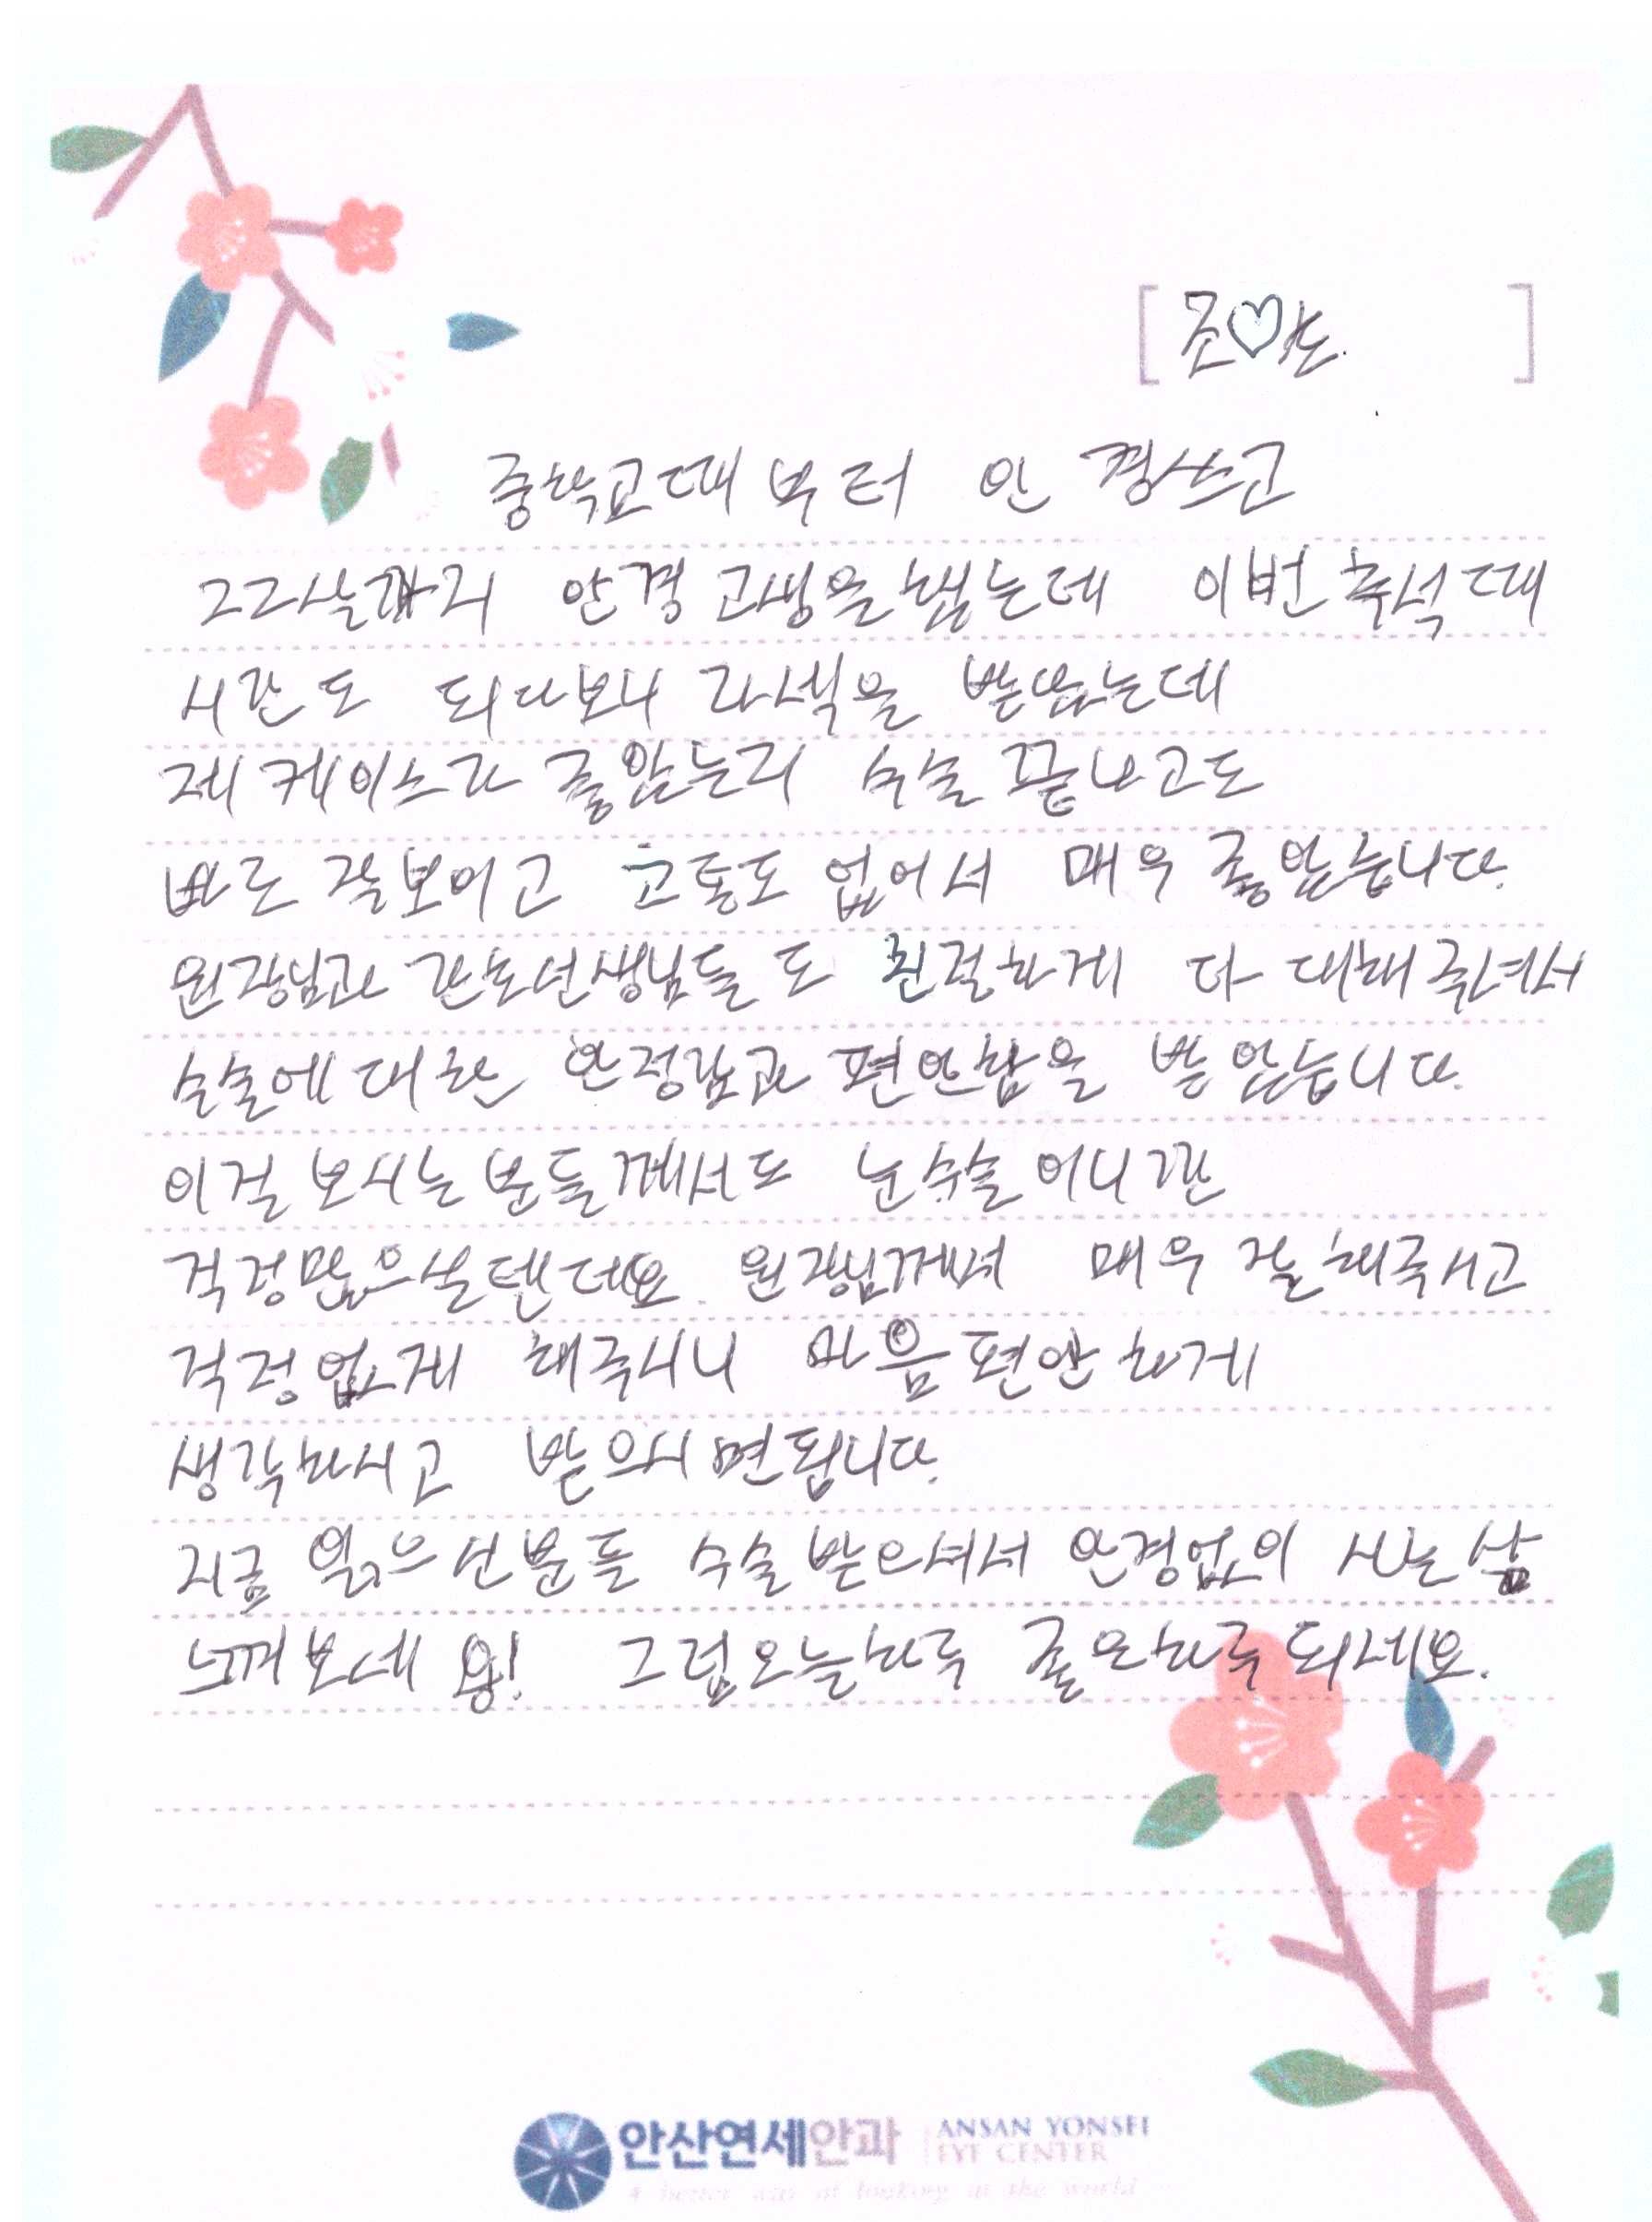 [조♡
중학교때부터 안경쓰고
그그살까지 안경 고생을했는데 이번추석때
시간도 되다보니 라섹을 받았는데
제 케이스가 좋았는지 수술 끝나고도
바로 잘보이고 고통도 없어서 매우 좋았습니다.
원장님과 간호선생님들도 친절하게 다 대해주셔서
수술에대한 안정감과 편안함을 받았습니다.
이걸 보시는분들께서도 눈수술이니깐
걱정많으실텐데요 원장님께서 매우 잘해주시고
걱정없게 해주시니 마음편안하게
생각하시고 받으시면됩니다.
지금 읽으신분들 수술받으셔서 안경없이 사는삶
느껴보세용! 그럼오늘하루 좋은하루되세요.
안산연세안과 ANSAN YONSEI
EYE CENTER
A better way of looking at the world